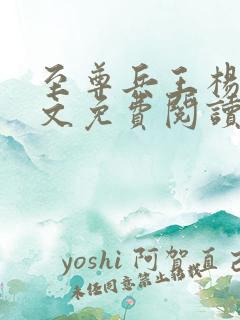 至尊兵王楊
文免費閱讀
yoshi 阿賀直己
未经同意禁止转载